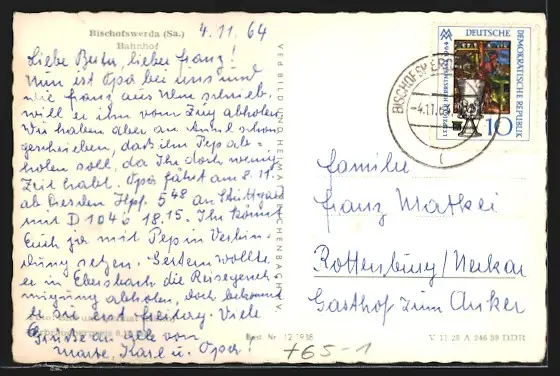 Bischofswerda (Sa.)
Bahnhof
4.11.64
Liebe Berta, lieber Franz!
Nun ist Opa bei uns und
wie Franz aus Ulm schrieb,
will er ihn vom Zug abholen.
Wir haben aber an schon
geschrieben, daß ihn Pep ab-
holen soll, da Ihr doch wenig
Zeit habt. Opa fährt am 8.11.
ab Dresden Hpf. 5 48 an Stuttgart
mit D 104 18.15. Ihr könnt
Euch ja mit Pep in Verbin-
dung setzen. Gestern wollte
er in Ebersbach die Reisegeneh-
migung abholen, doch bekommt
er sie erst Freitag. Viele
Grüße an alle von
Marta, Karl u. Opa!
VEB BILD UND HEIMAT REICHENBACH I. V.
Best Nr. 12/1938
+65-1
V 11 28 A 246 59 DDR
DEUTSCHE
DEMOKRATISCHE REPUBLIK
10
BISCHOFSWERDA
-4.11.64
Familie
Franz Matkei
Rottenburg/Neckar
Gasthof zum Anker